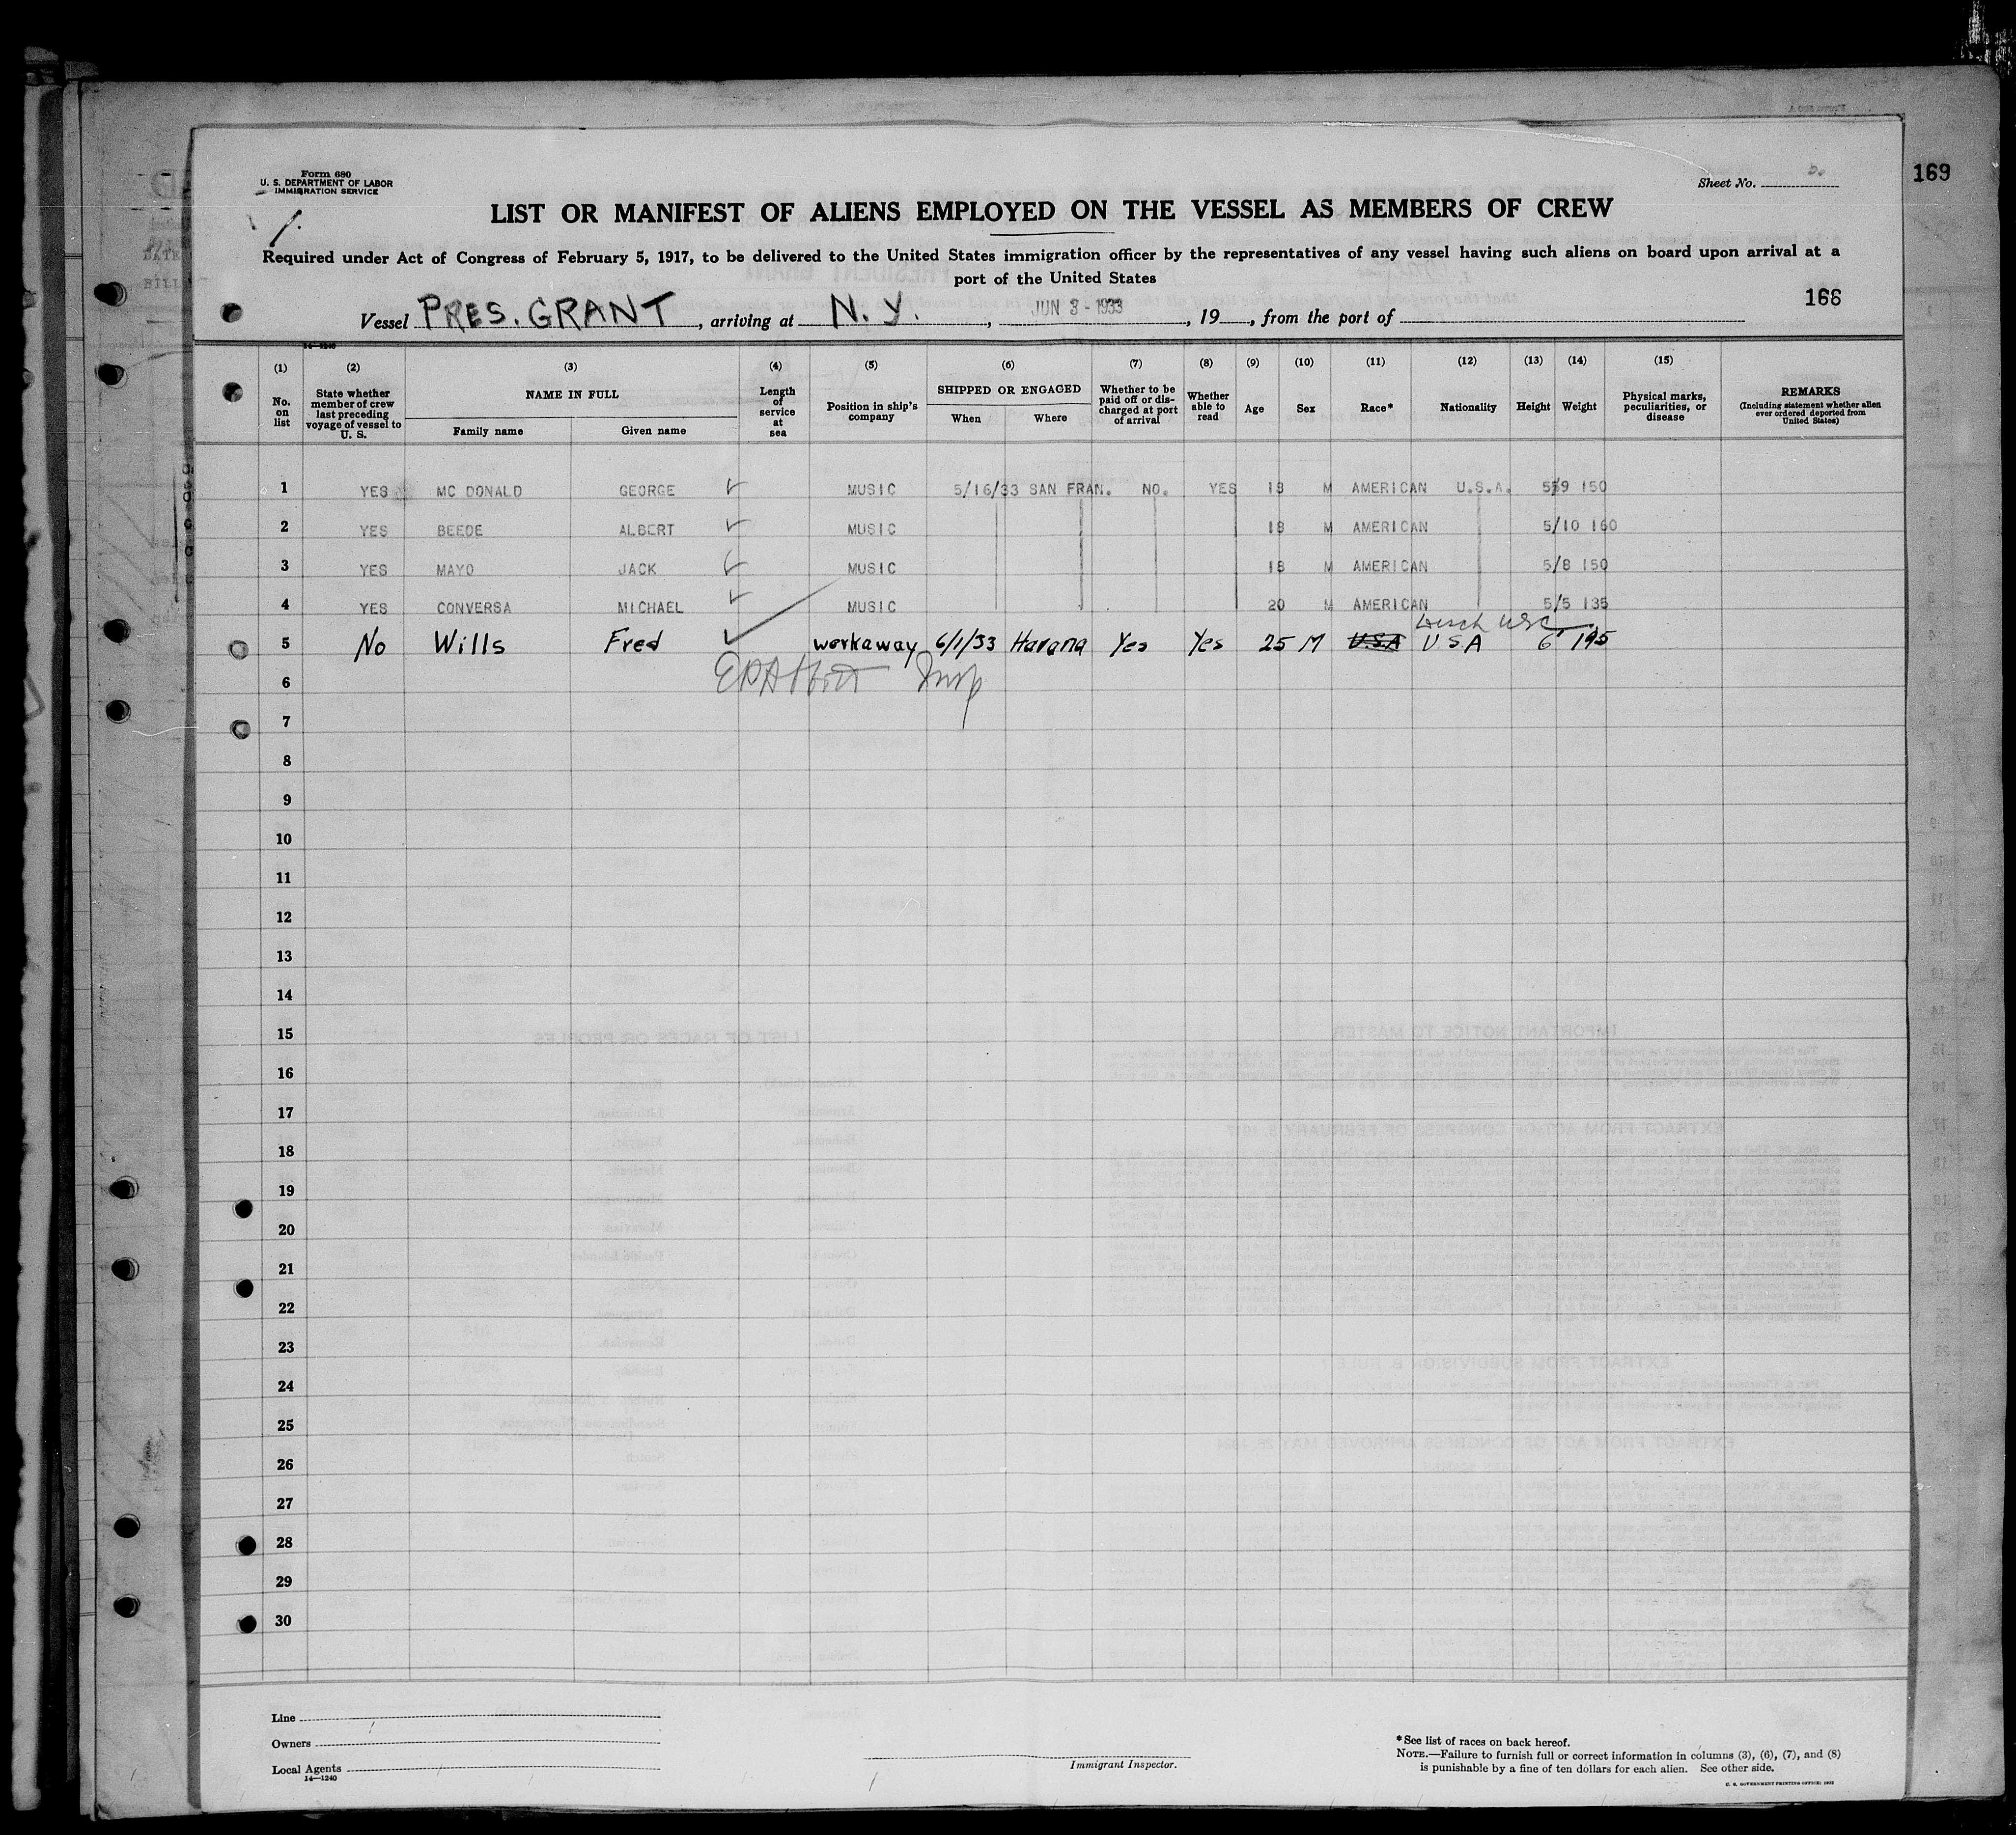 Form 680
U. S. DEPARTMENT OF LABOR
IMMIGRATION SERVICE
Sheet No. 5.
169
LIST OR MANIFEST OF ALIENS EMPLOYED ON THE VESSEL AS MEMBERS OF CREW
Required under Act of Congress of February 5, 1917, to be delivered to the United States immigration officer by the representatives of any vessel having such aliens on board upon arrival at a
port of the United States
166
Vessel PRES. GRANT, arriving at N. Y., JUN 3 - 1933, 19, from the port of
14—1240
(1) (2) (3) (4) (5) (6) (7) (8) (9) (10) (11) (12) (13) (14) (15)
No. on list
State whether member of crew last preceding voyage of vessel to U. S.
NAME IN FULL
Family name
Given name
Length of service at sea
Position in ship's company
SHIPPED OR ENGAGED
When
Where
Whether to be paid off or discharged at port of arrival
Whether able to read
Age
Sex
Race*
Nationality
Height
Weight
Physical marks, peculiarities, or disease
REMARKS
(Including statement whether alien ever ordered deported from United States)
1 YES MC DONALD GEORGE MUSIC 5/16/33 SAN FRAN. NO. YES 18 M AMERICAN U.S.A. 5/9 150
2 YES BEEDE ALBERT MUSIC 18 M AMERICAN 5/10 160
3 YES MAYO JACK MUSIC 18 M AMERICAN 5/8 150
4 YES CONVERSA MICHAEL MUSIC 20 M AMERICAN 5/5 135
5 No Wills Fred workaway 6/1/33 Havana Yes Yes 25 M U.S.A U S A 6' 195
6 Insp
7
8
9
10
11
12
13
14
15
16
17
18
19
20
21
22
23
24
25
26
27
28
29
30
Line
Owners
Local Agents
14—1240
Immigrant Inspector.
*See list of races on back hereof.
NOTE.—Failure to furnish full or correct information in columns (3), (6), (7), and (8)
is punishable by a fine of ten dollars for each alien. See other side.